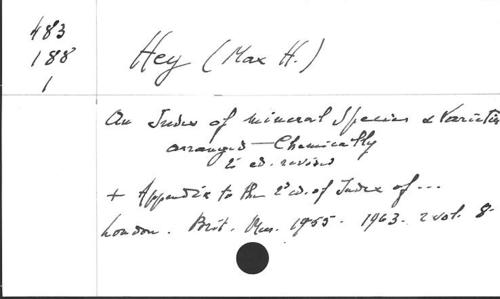 483
188
1
Hey (Max H.)
An Index of mineral Species & Varieties
arranged Chemically
2d ed. revised
+ Appendix to the 2d ed. of Index of...
London. Brit. Mus. 1955 - 1963. 2 vol. 8°